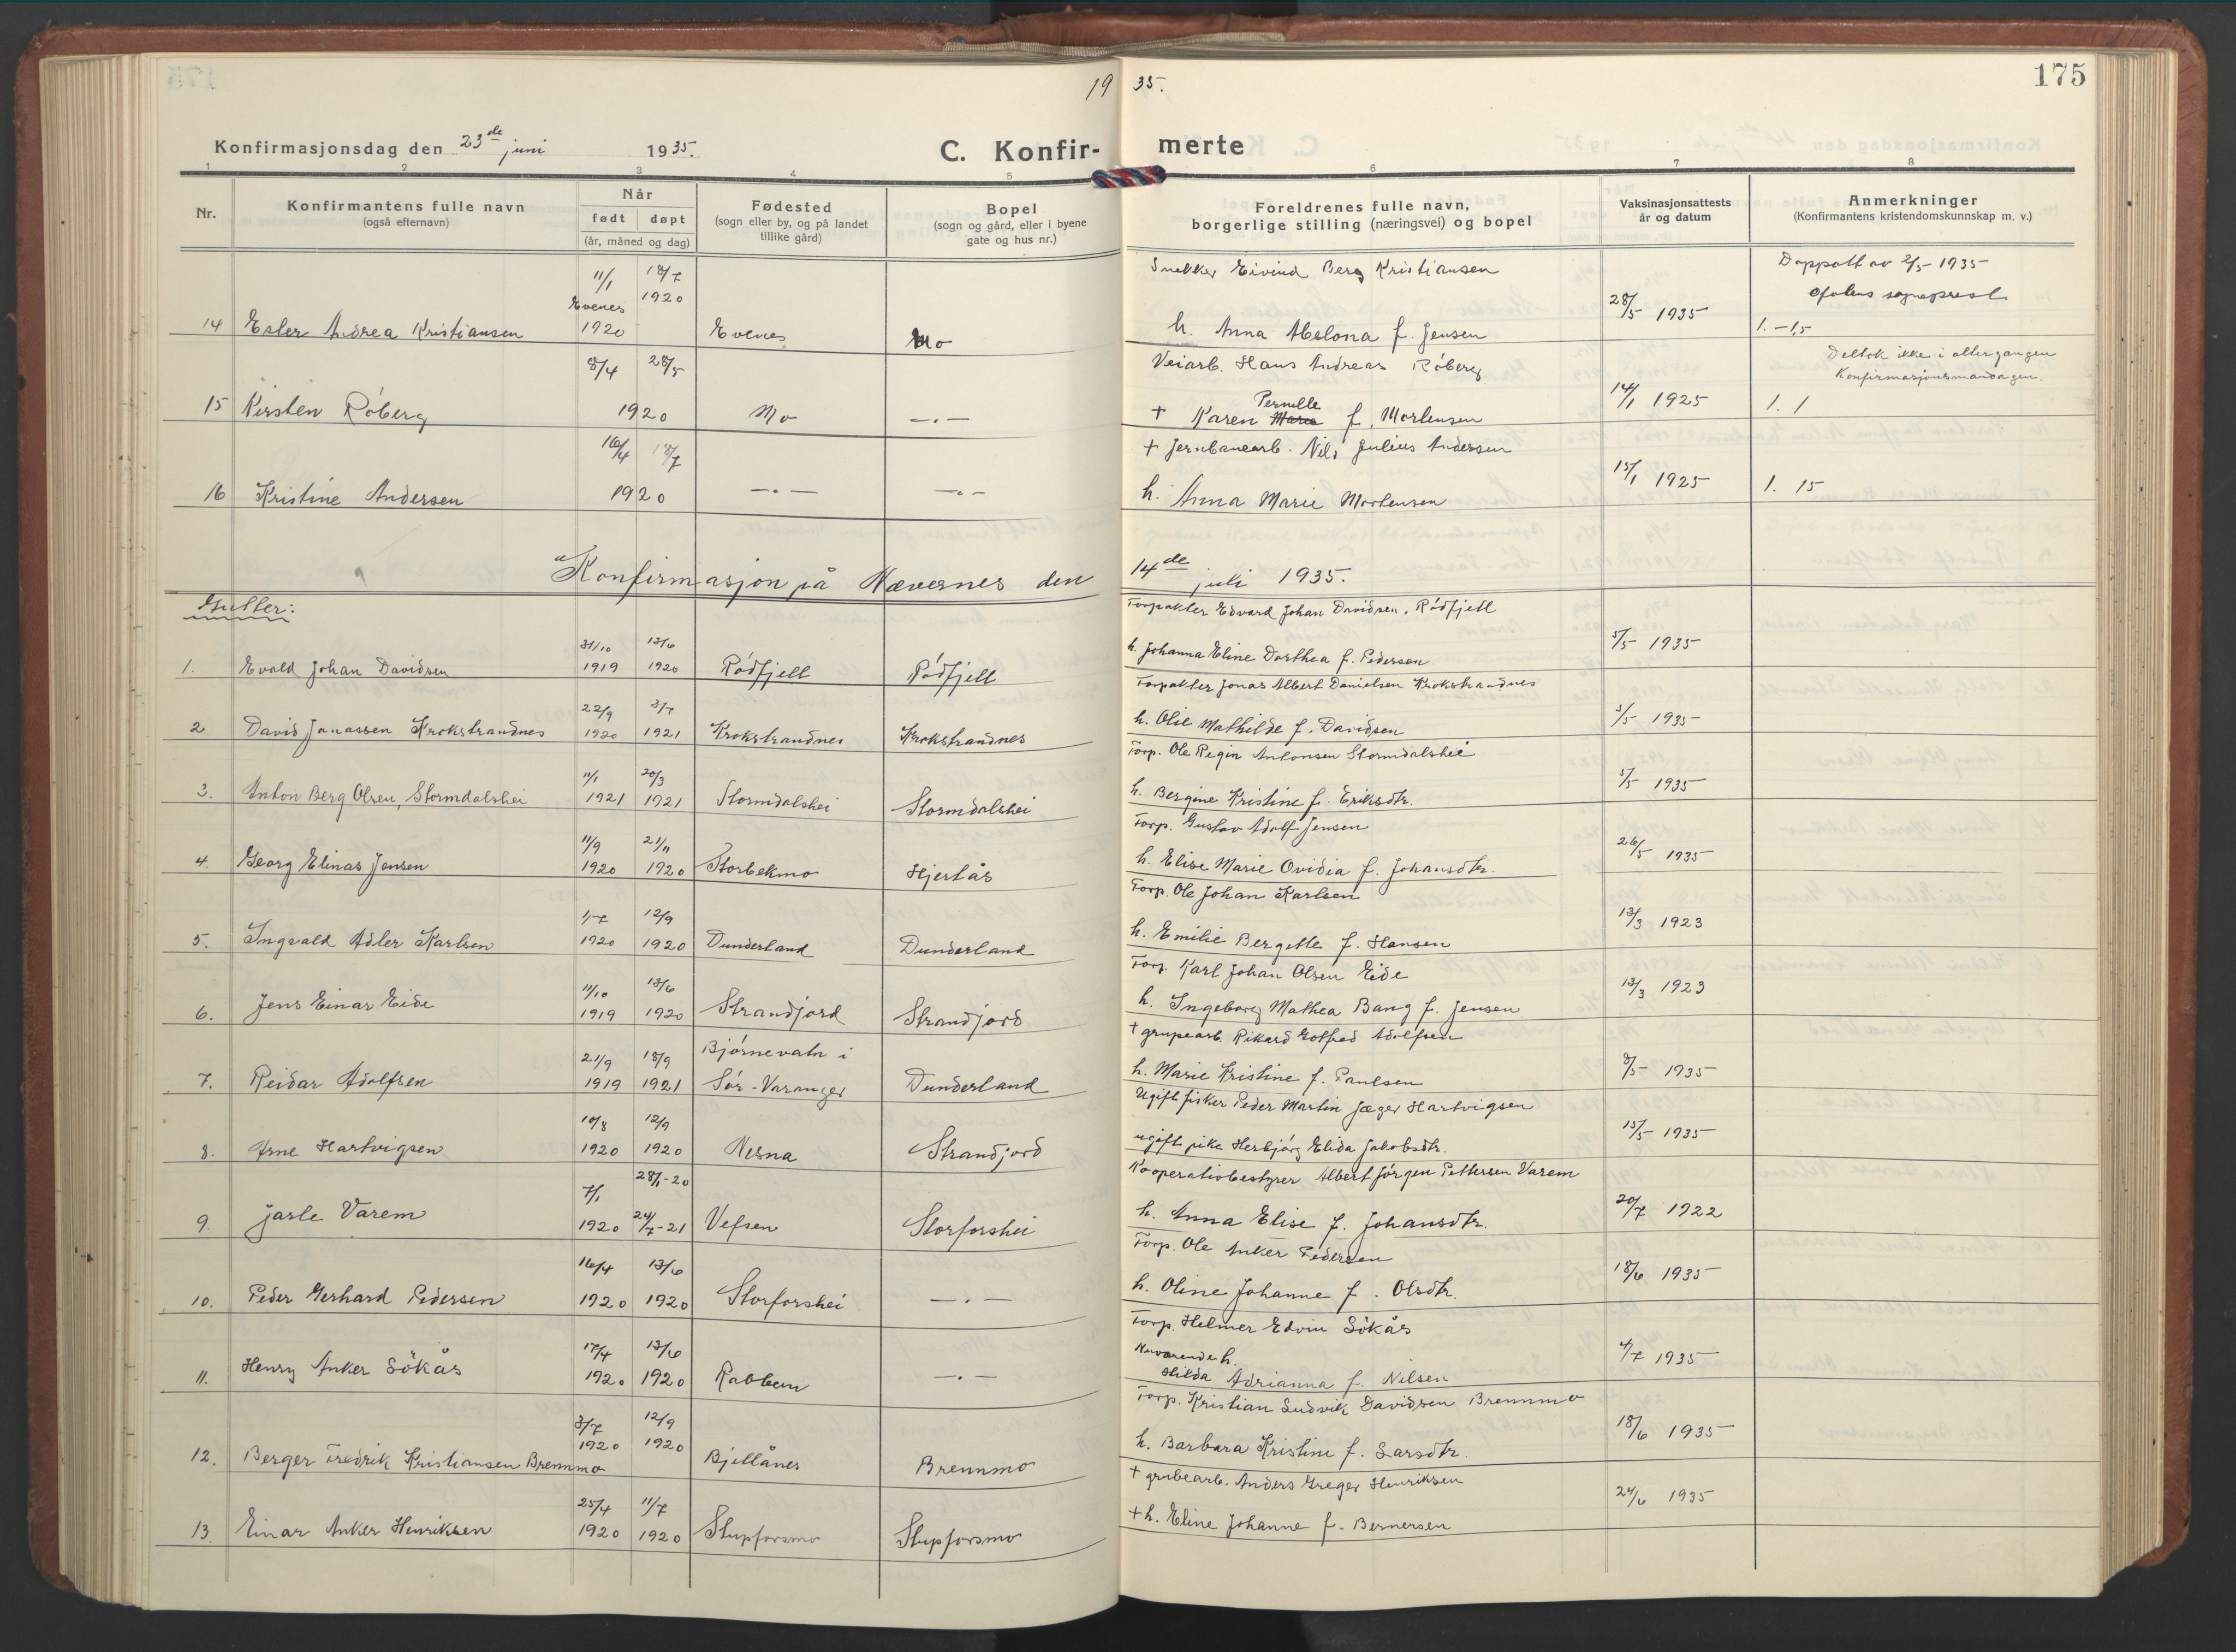 19 35.
175
Konfirmasjonsdag den 23de juni 1935.
C. Konfir- merte
1 2 3 4 5 6 7 8
Nr.
Konfirmantens fulle navn
(også efternavn)
Når
født døpt
(år, måned og dag)
Fødested
(sogn eller by, og på landet
tillike gård)
Bopel
(sogn og gård, eller i byene
gate og hus nr.)
Foreldrenes fulle navn,
borgerlige stilling (næringsvei) og bopel
Vaksinasjonsattests
år og datum
Anmerkninger
(Konfirmantens kristendomskunnskap m. v.)
11/1 18/7 Snekker Eivind Berg Kristiansen Døpeatt av 2/5 - 1935
Evenes 1920 28/5 1935 Ofotens sogneprest
14 Ester Andrea Kristiansen 1920 Evenes Mo h. Anna Abelona f. Jensen 1. - 1,5
8/4 28/5 Veiarb. Hans Andreas Røberg Deltok ikke i altergangen
14/1 1925 Konfirmasjonsmandagen.
15 Kirsten Røberg 1920 Mo —.— + Karen Pernille f. Mortensen 1. 1
16/4 18/7 + Jernbanearb. Nils Julius Andersen
16 Kristine Andersen 1920 —.— —.— h. Anna Marie Mortensen 15/1 1925 1. 15
Konfirmasjon på Nævernes den 14de juli 1935.
Gutter:
31/10 13/6 Forpakter Edvard Johan Davidsen, Rødfjell
1. Evald Johan Davidsen 1919 1920 Rødfjell Rødfjell h. Johanna Eline Dorthea f. Pedersen 5/5 1935
22/9 3/7 Forpakter Jonas Albert Danielsen Krokstrandnes
2 David Jonassen Krokstrandnes 1920 1921 Krokstrandnes Krokstrandnes h. Olie Mathilde f. Davidsen 5/5 1935
11/1 20/3 Forp. Ole Regin Antonsen Stormdalshei
3. Anton Berg Olsen, Stormdalshei 1921 1921 Stormdalshei Stormdalshei h. Bergine Kristine f. Eriksdtr. 5/5 1935
11/9 21/11 Forp. Gustav Adolf Jensen
4. Georg Elinas Jensen 1920 1920 Storbekmo Hjertås h. Elise Marie Ovidia f. Johansdtr. 26/5 1935
1/7 12/9 Forp. Ole Johan Karlsen
5. Ingvald Adler Karlsen 1920 1920 Dunderland Dunderland h. Emilie Bergette f. Hansen 13/3 1923
11/10 13/6 Forp. Karl Johan Olsen Eide
6. Jens Einar Eide 1919 1920 Strandjord Strandjord h. Ingeborg Mathea Bang f. Jensen 13/3 1923
21/9 18/9 Bjørnevatn i + grupearb. Rikard Gotfred Adolfsen
7. Reidar Adolfsen 1919 1921 Sør-Varanger Dunderland h. Marie Kristine f. Paulsen 8/5 1935
10/8 12/9 Ugift fisker Peder Martin Jæger Hartvigsen
8. Arne Hartvigsen 1920 1920 Nesna Strandjord ugift pike Herbjørg Elida Jakobsdtr. 15/5 1935
7/1 28/1-20 Kooperatiobestyrer Albert Jørgen Pettersen Varem
9. Jarle Varem 1920 24/7-21 Vefsen Storforshei h. Anna Elise f. Johansdtr. 20/7 1922
16/4 13/6 Forp. Ole Anker Pedersen
10. Peder Gerhard Pedersen 1920 1920 Storforshei —.— h. Oline Johanne f. Olsdtr. 18/6 1935
17/4 13/6 Forp. Helmer Edvin Søkås
Nuværende h.
11. Henry Anker Søkås 1920 1920 Rabben —.— Hilda Adrianna f. Nilsen 4/7 1935
3/7 12/9 Forp. Kristian Ludvik Davidsen Brennmo
12. Berger Fredrik Kristiansen Brennmo 1920 1920 Bjellånes Brennmo h. Barbara Kristine f. Larsdtr. 18/6 1935
25/4 11/7 + grubearb. Anders Greger Henriksen
13. Einar Anker Henriksen 1920 1920 Stupforsmo Stupforsmo + h. Eline Johanne f. Bernersen 24/6 1935